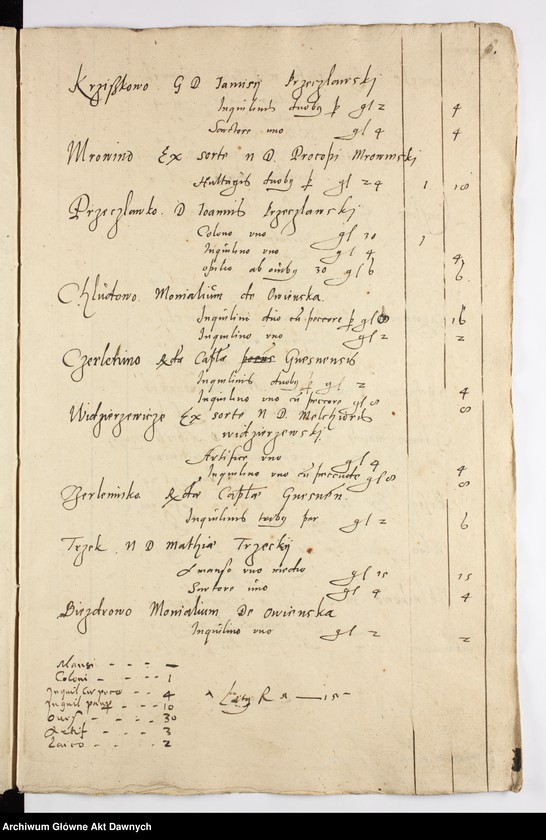 6.
Krzisskowo G D Janusij Przeczlawskj
Inquilinis duoby p gl 2 4
Sartore uno gl 4 4
Mrowino Ex sorte n D. Procopi Mrowinskj
Hultagis duoby p gl 24 1 18
Przeczlawko D Joannis Przeczlawskj
Colono uno gl 30 1
Inquilino uno gl 4 4
opilio ab ouiby 30 gl 6 6
Chludowo Monialium de Owienska
Inquilini duo cu peccore p gl 8 16
Inquilino uno gl 2 2
Czerlekino Caplae Gnesnensis
Inquilinis duoby p gl 2 4
Inquilino uno cu peccore gl 8 8
Widzierzewicze Ex sorte N D. Melchioris
widzierzewskj
Artifice uno gl 4 4
Inquilino uno cu peccude gl 8 8
Caplae Gnesnen.
Inquilinis triby per gl 2 6
Trzek N D Mathiae Trzeckj
A manso uno medio gl 15 15
Sartore uno gl 4 4
Biezdrowo Monialium De Owienska
Inquilino uno gl 2 2
Mansi - - - —
Coloni - - - 1
Inquil cu peco - - 4
Inquil paup - - 10
Oues - - - 30
Artif - - - 3
- - - 2
15
Archiwum Główne Akt Dawnych